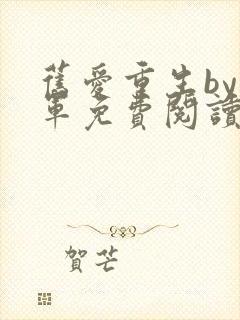 舊愛重生by
軍免費閱讀
賀芒